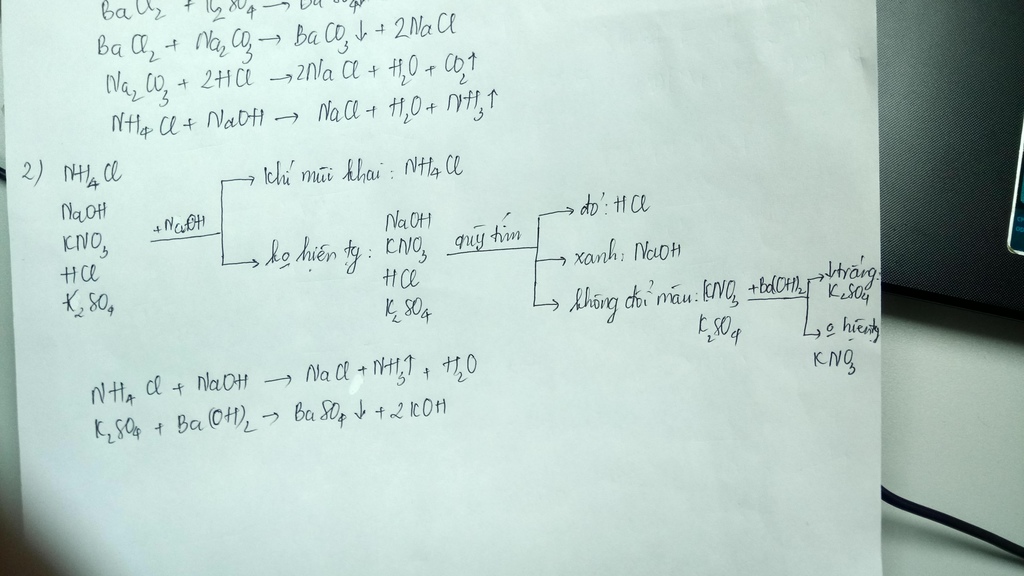 BaCl₂ + K₂SO₄ → BaSO₄
BaCl₂ + Na₂CO₃ → BaCO₃↓ + 2NaCl
Na₂CO₃ + 2HCl → 2NaCl + H₂O + CO₂↑
NH₄Cl + NaOH → NaCl + H₂O + NH₃↑
2) NH₄Cl
NaOH
KNO₃
HCl
K₂SO₄
+NaOH
khí mùi khai: NH₄Cl
ko hiện tg:
NaOH
KNO₃
HCl
K₂SO₄
quỳ tím
đỏ: HCl
xanh: NaOH
không đổi màu: KNO₃
K₂SO₄
+Ba(OH)₂
↓trắng:
K₂SO₄
o hiện tg
KNO₃
NH₄Cl + NaOH → NaCl + NH₃↑ + H₂O
K₂SO₄ + Ba(OH)₂ → BaSO₄↓ + 2KOH